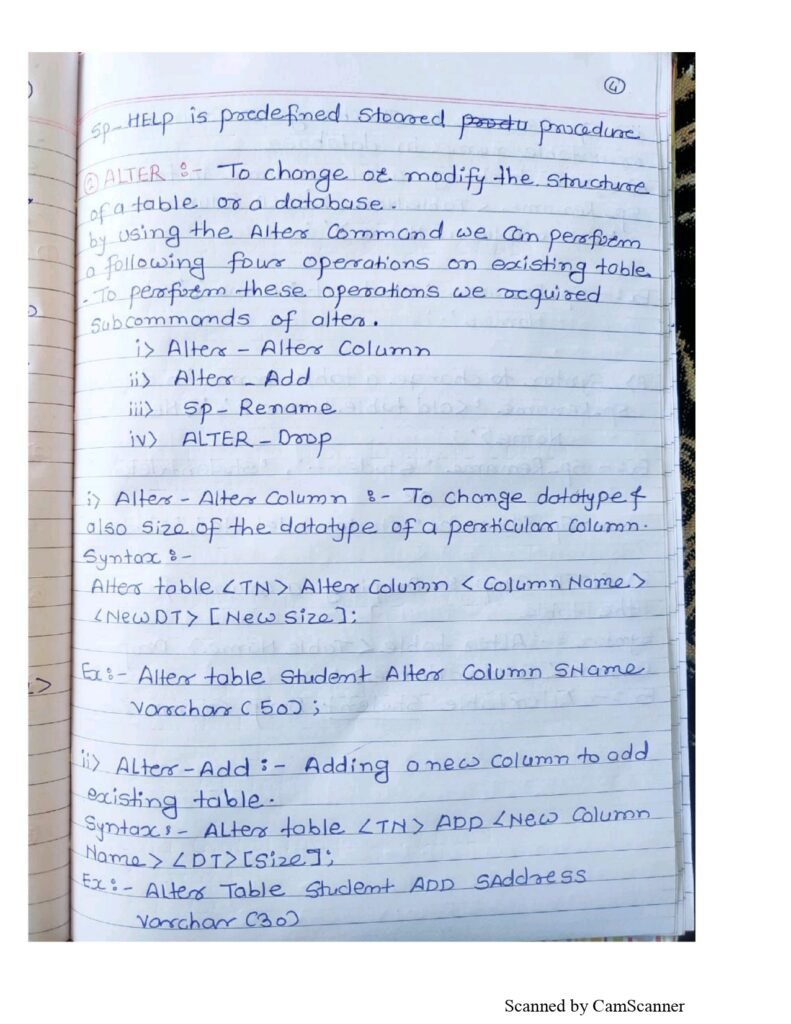 4
Sp-HELP is predefined Stoared procedure
② ALTER :- To change or modify the structure
of a table or a database.
by using the Alter Command we can perform
a following four operations on existing table
- To perform these operations we required
Subcommands of alter.
i> Alter - Alter Column
ii> Alter - Add
iii> Sp - Rename
iv> ALTER - Drop
i> Alter - Alter Column :- To change datatype &
also size of the datatype of a perticular column.
Syntax :-
Alter table <TN> Alter Column < Column Name>
<New DT> [New Size];
Ex:- Alter table Student Alter Column SName
Varchar (50);
ii> Alter - Add :- Adding a new column to add
existing table.
Syntax :- Alter table <TN> ADD <New Column
Name> <DT> [Size];
Ex :- Alter Table Student ADD SAddress
Varchar (30)
Scanned by CamScanner